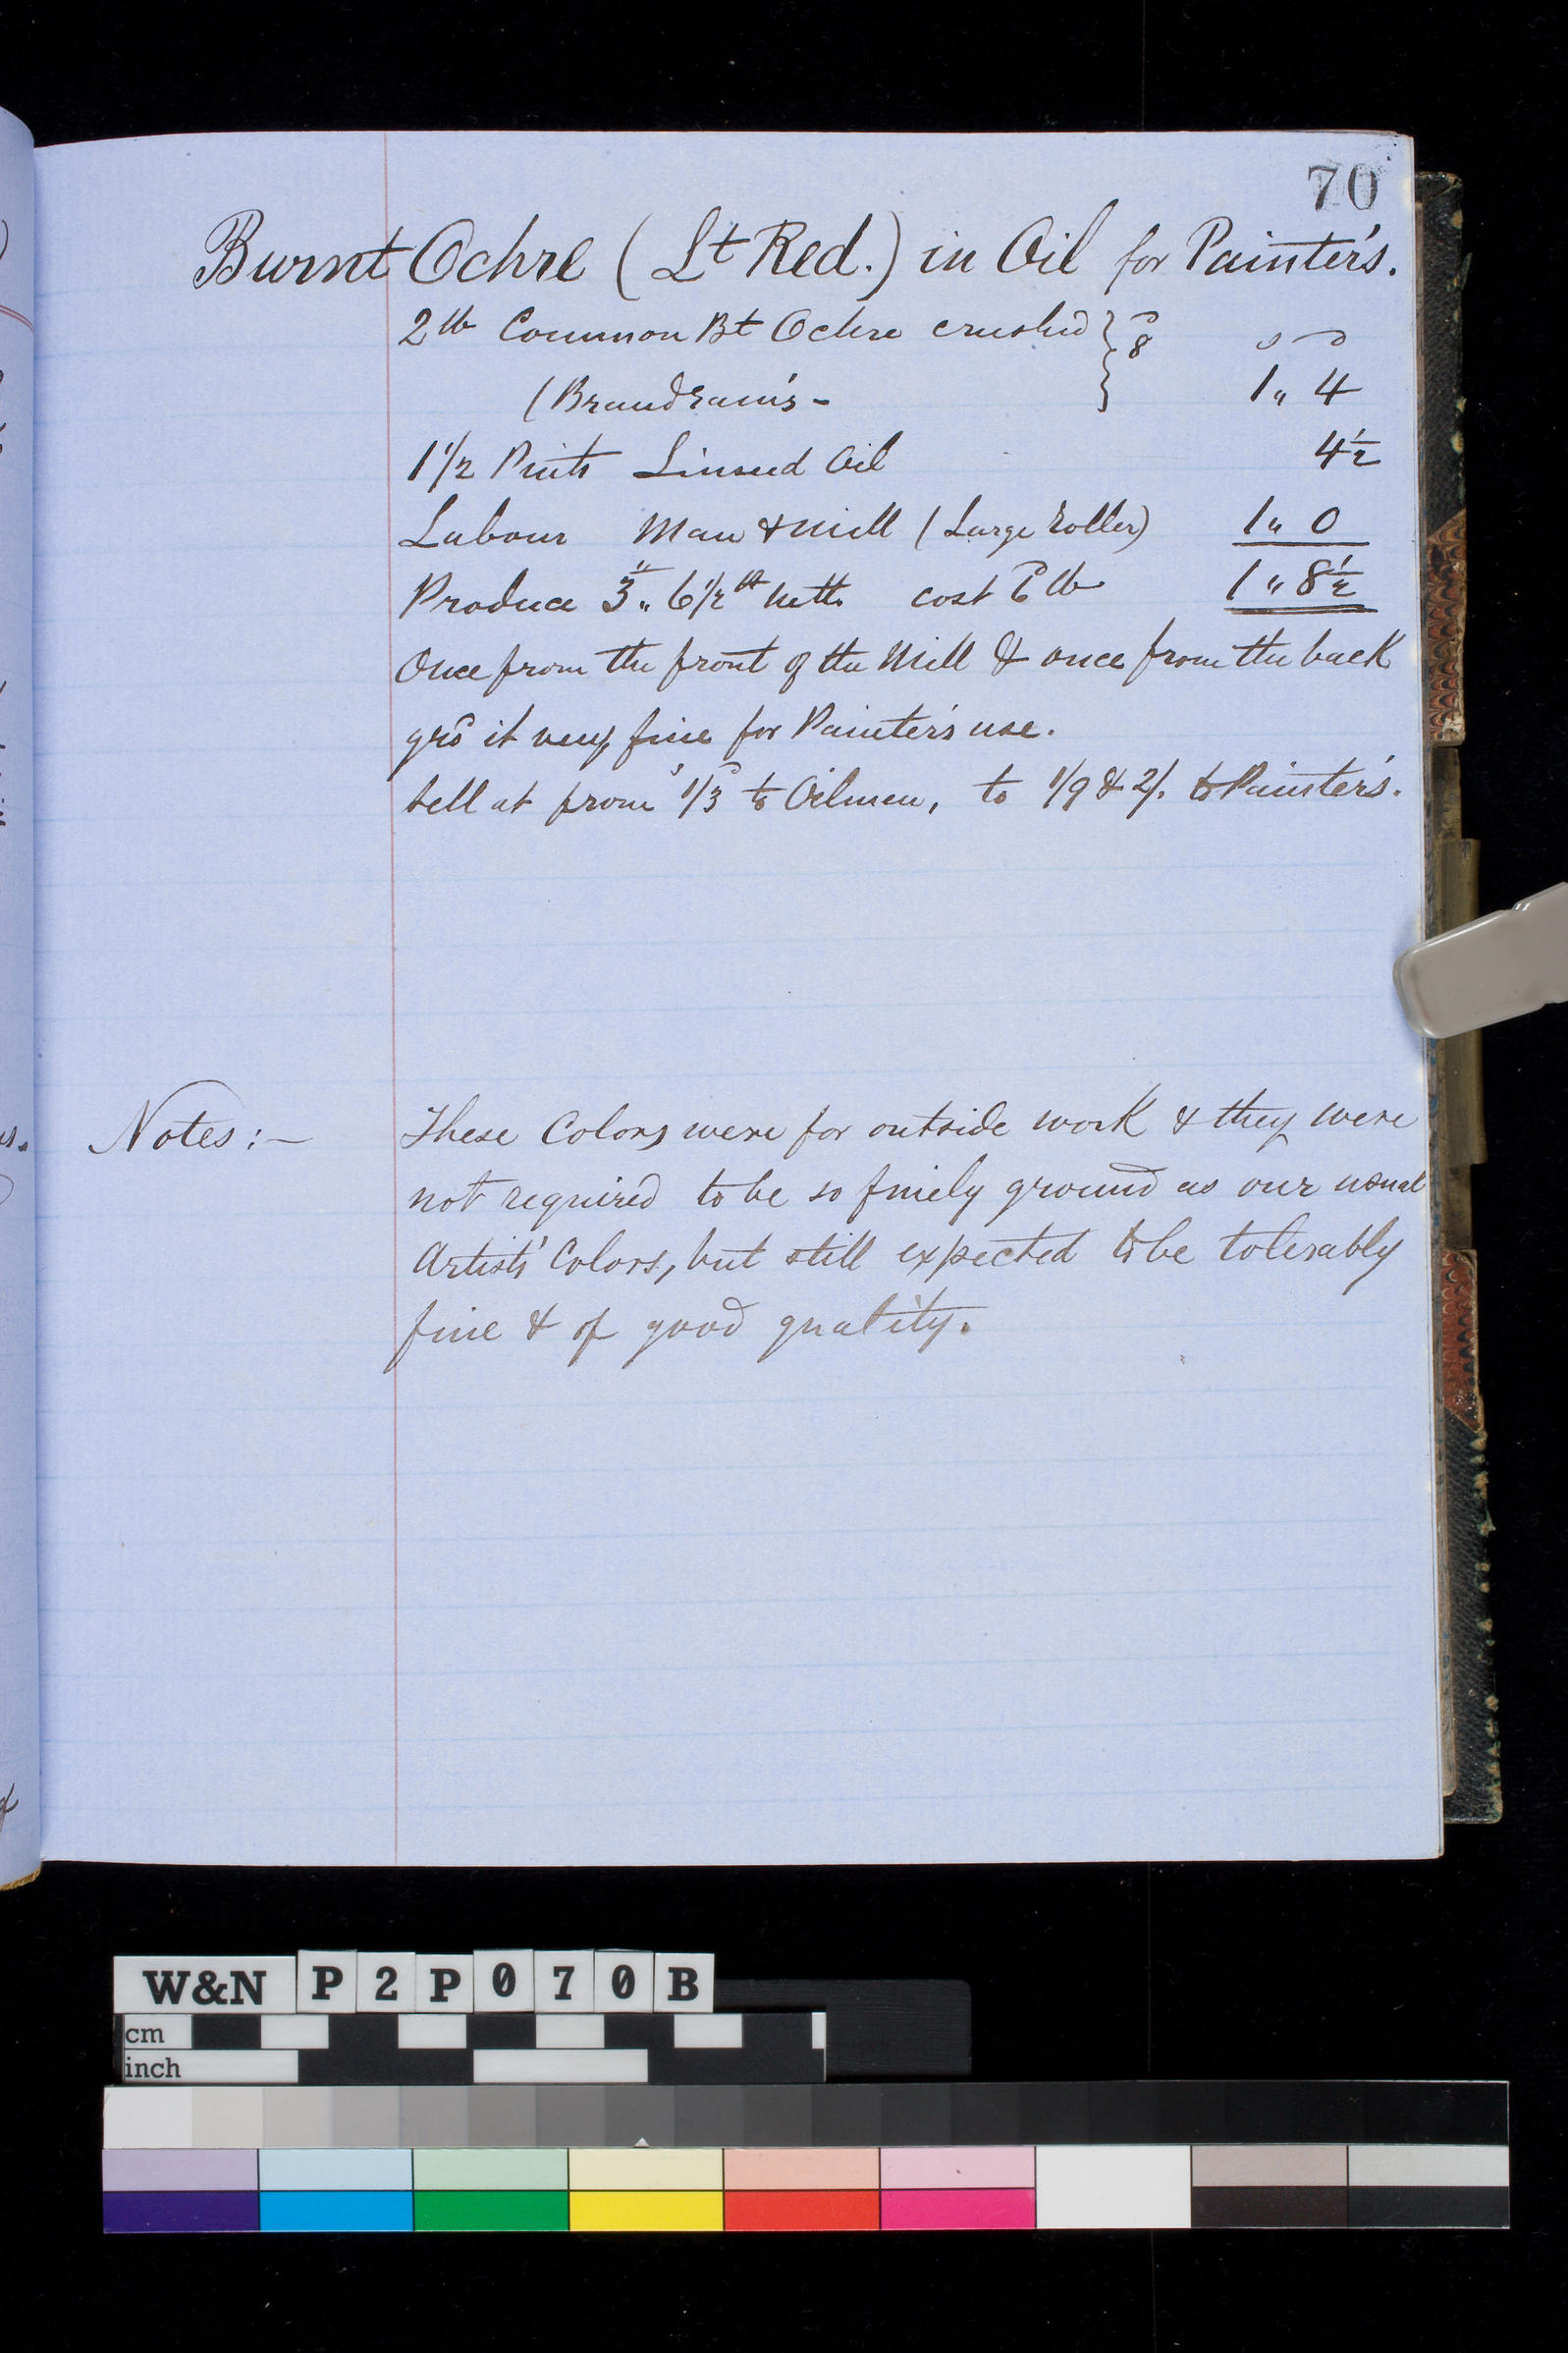 70
Burnt Ochre (Lt Red.) in Oil for Painter's.
2 lb Common Bt Ochre crushed } 8d s d
(Brandram's - 1 " 4
1 1/2 Pints Linseed Oil 4 1/2
Labour Man & Mill (Large Roller) 1 " 0
Produce 3 " 6 1/2 nett. cost lb 1 " 8 1/2
Once from the front of the Mill & once from the back
grd it very fine for Painter's use.
Sell at from 1/3 to Oilmen, to 1/9 & 2/. to Painter's.
Notes:- These Colors were for outside work & they were
not required to be so finely ground as our usual
Artists' Colors, but still expected to be tolerably
fine & of good quality.
W&N P2P070B
cm
inch